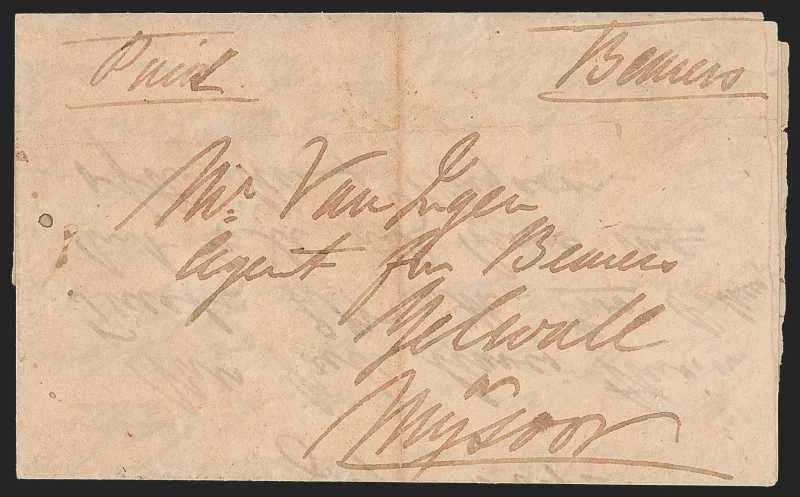 Paid Bearers
Mr. Van Ingen
Agent for Bearers
Yelwall
or
Mysoor